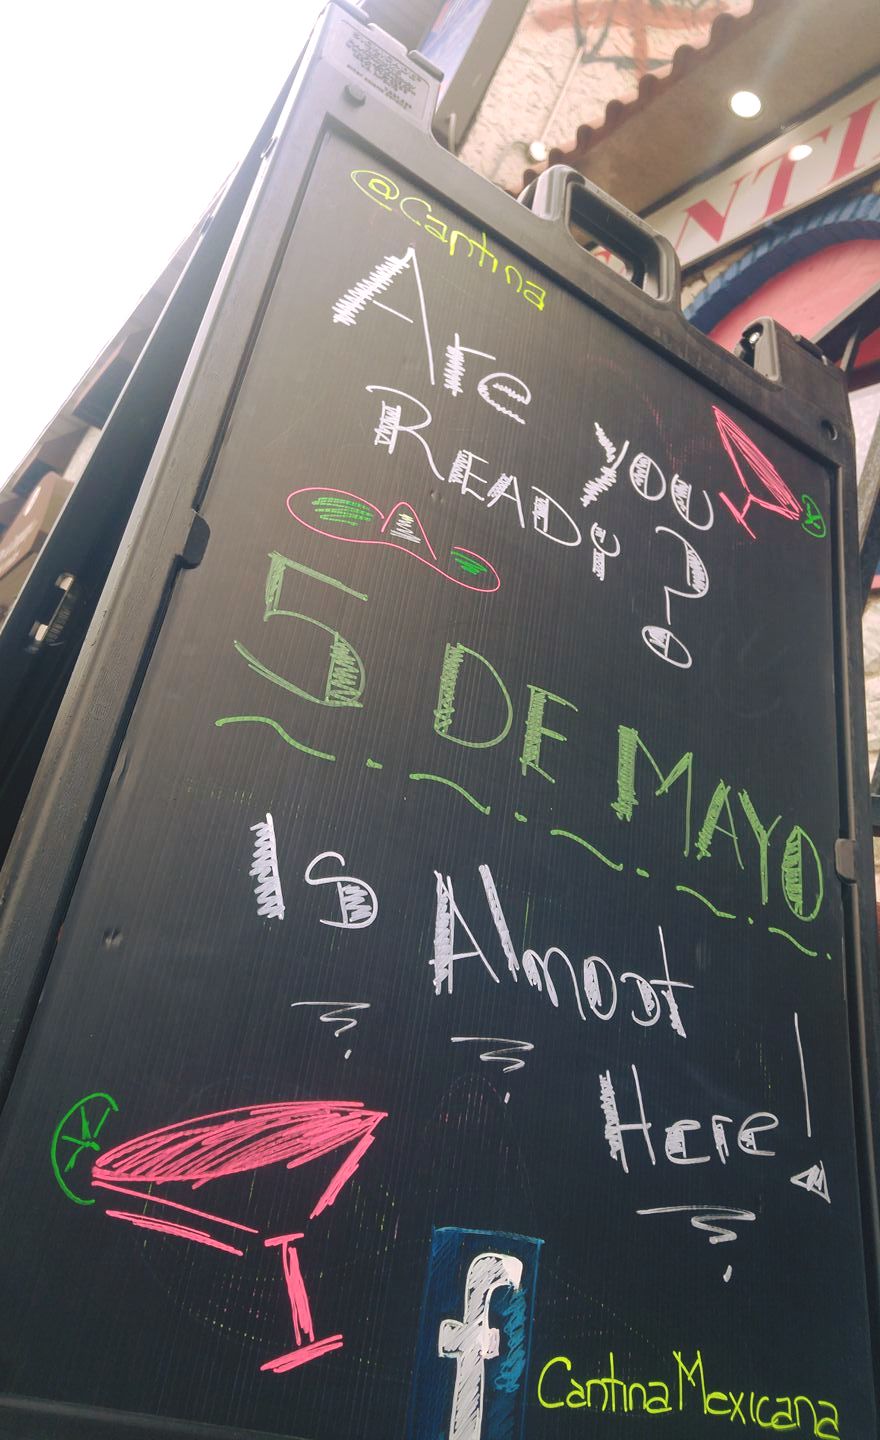 @Cantina
Are You
READy?
5 DE MAYO
Is Almost
Here!
f
CantinaMexicana
NTI